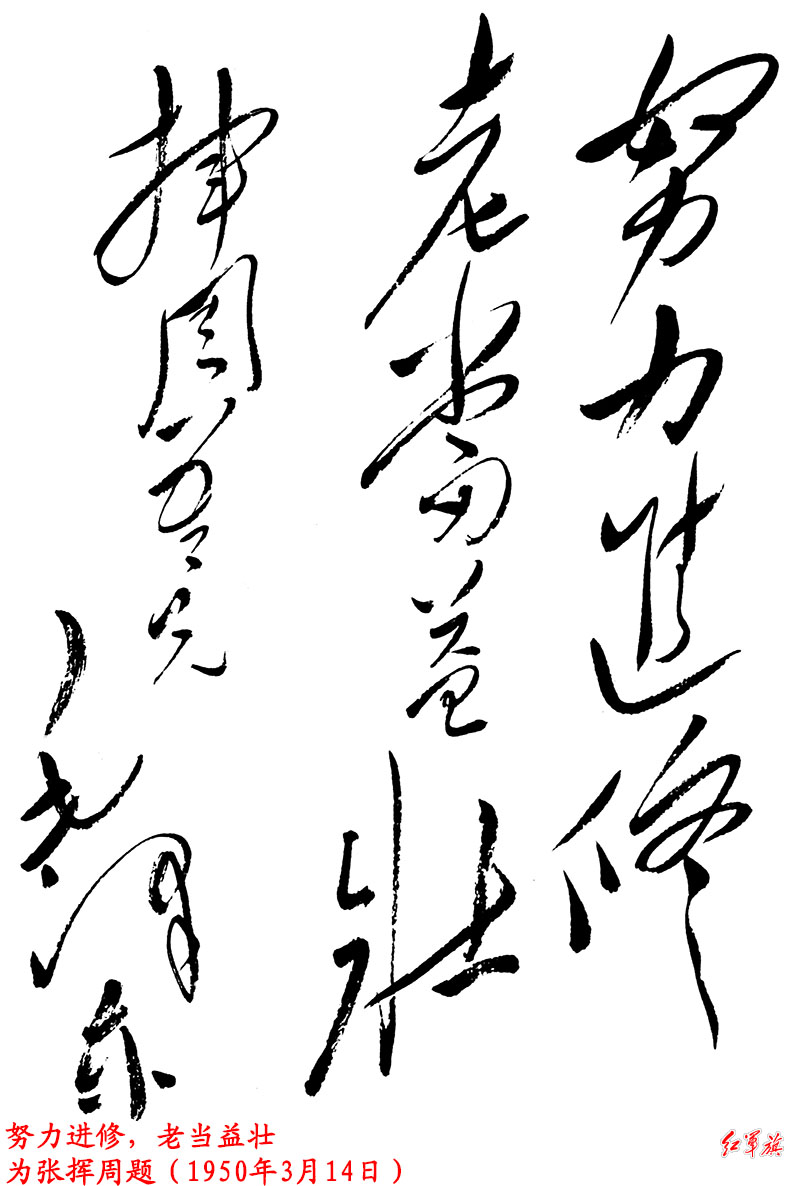 努力進修
老當益壯
揮周兄
毛澤东
努力进修，老当益壮
为张挥周题（1950年3月14日）
红军旗